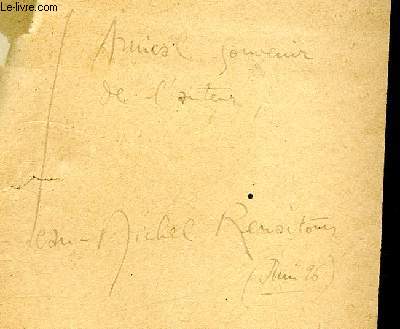 Le-Livre.com
Amical souvenir
de l'auteur
Jean-Michel Renaitour
(Juin 26)